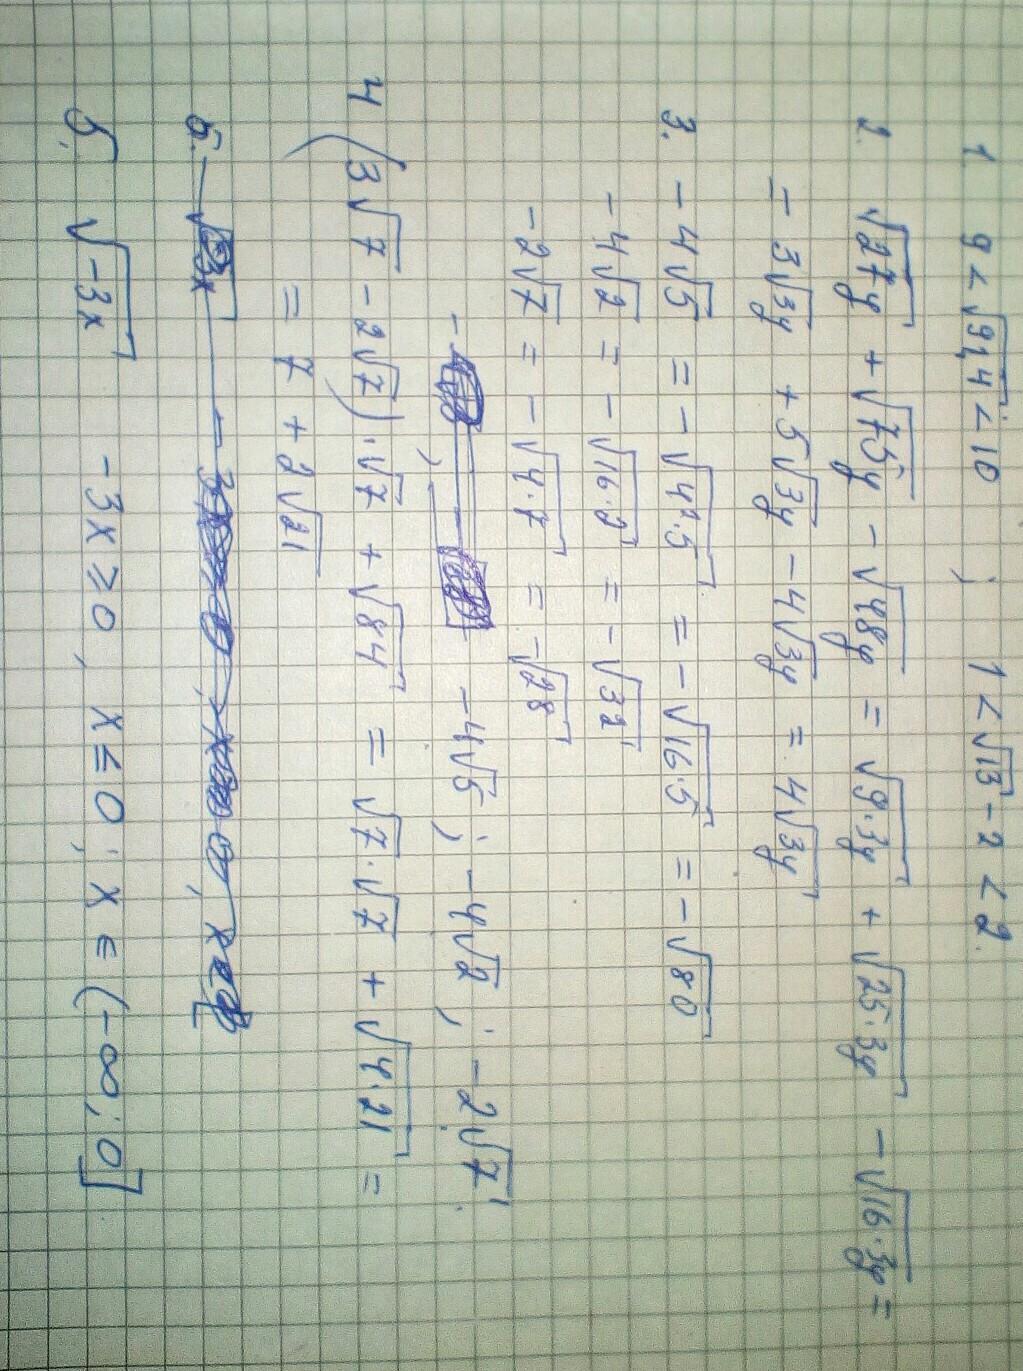 1. 9 < √91,4 < 10 ; 1 < √13 - 2 < 2.
2. √27y + √75y - √48y = √9·3y + √25·3y - √16·3y =
= 3√3y + 5√3y - 4√3y = 4√3y
3. -4√5 = -√4²·5 = -√16·5 = -√80
-4√2 = -√16·2 = -√32
-2√7 = -√4·7 = -√28
-4√5 ; -4√2 ; -2√7.
4 (3√7 - 2√7)·√7 + √84 = √7·√7 + √4·21 =
= 7 + 2√21
5. √-3x -3x ≥ 0, x ≤ 0; x ∈ (-∞; 0]